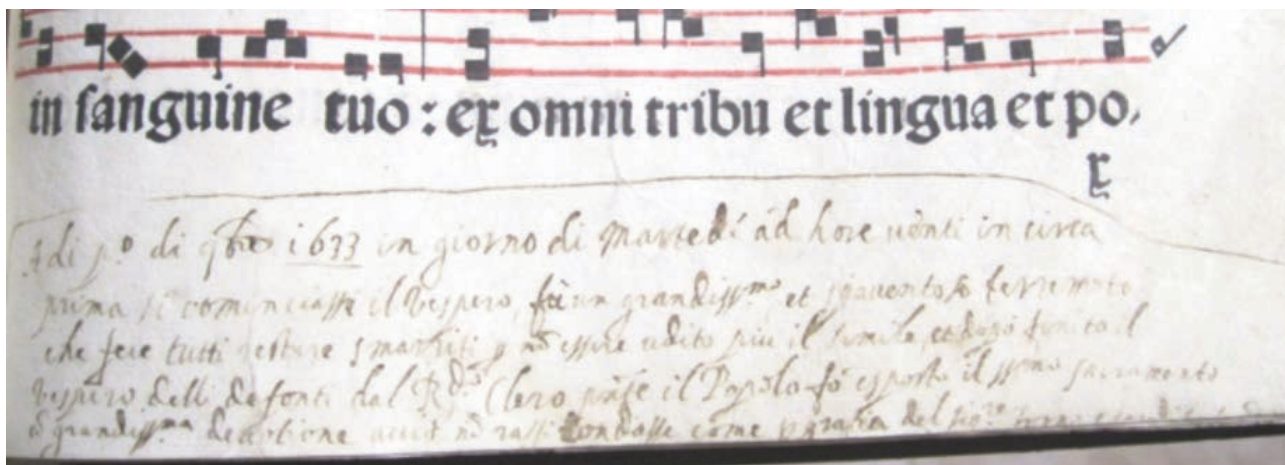 in sanguine tuo : ex omni tribu et lingua et po,
x
Adi p.º di 9bre 1633 in giorno di Martedi ad hore venti in circa
prima si cominciasse il Vespero, fù un grandiss.mo et spaventoso terremoto
che fece tutti restare smarriti p nõ essere udito piu il simile, et dopò finito il
Vespero delli defonti dal R.do Clero il Popolo fù esposto il ss.mo sacramento
cõ grandiss.ma devotione nõ come p gratia del Sig.re